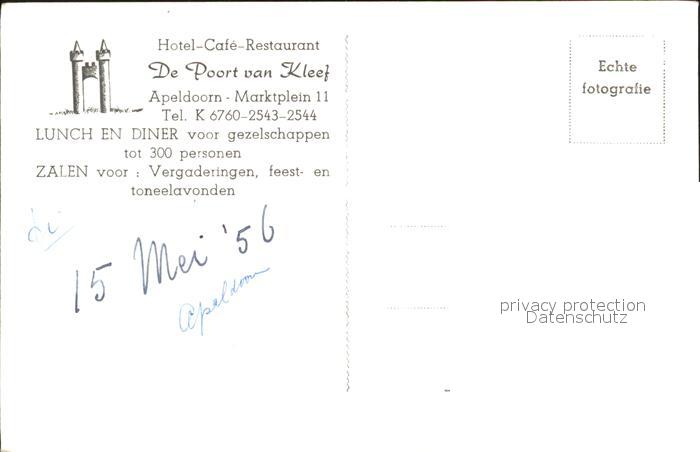 Hotel-Café-Restaurant
De Poort van Kleef
Apeldoorn - Marktplein 11
Tel. K 6760-2543-2544
LUNCH EN DINER voor gezelschappen
tot 300 personen
ZALEN voor : Vergaderingen, feest- en
toneelavonden
15 Mei '56
Apeldoorn
Echte
fotografie
privacy protection
Datenschutz